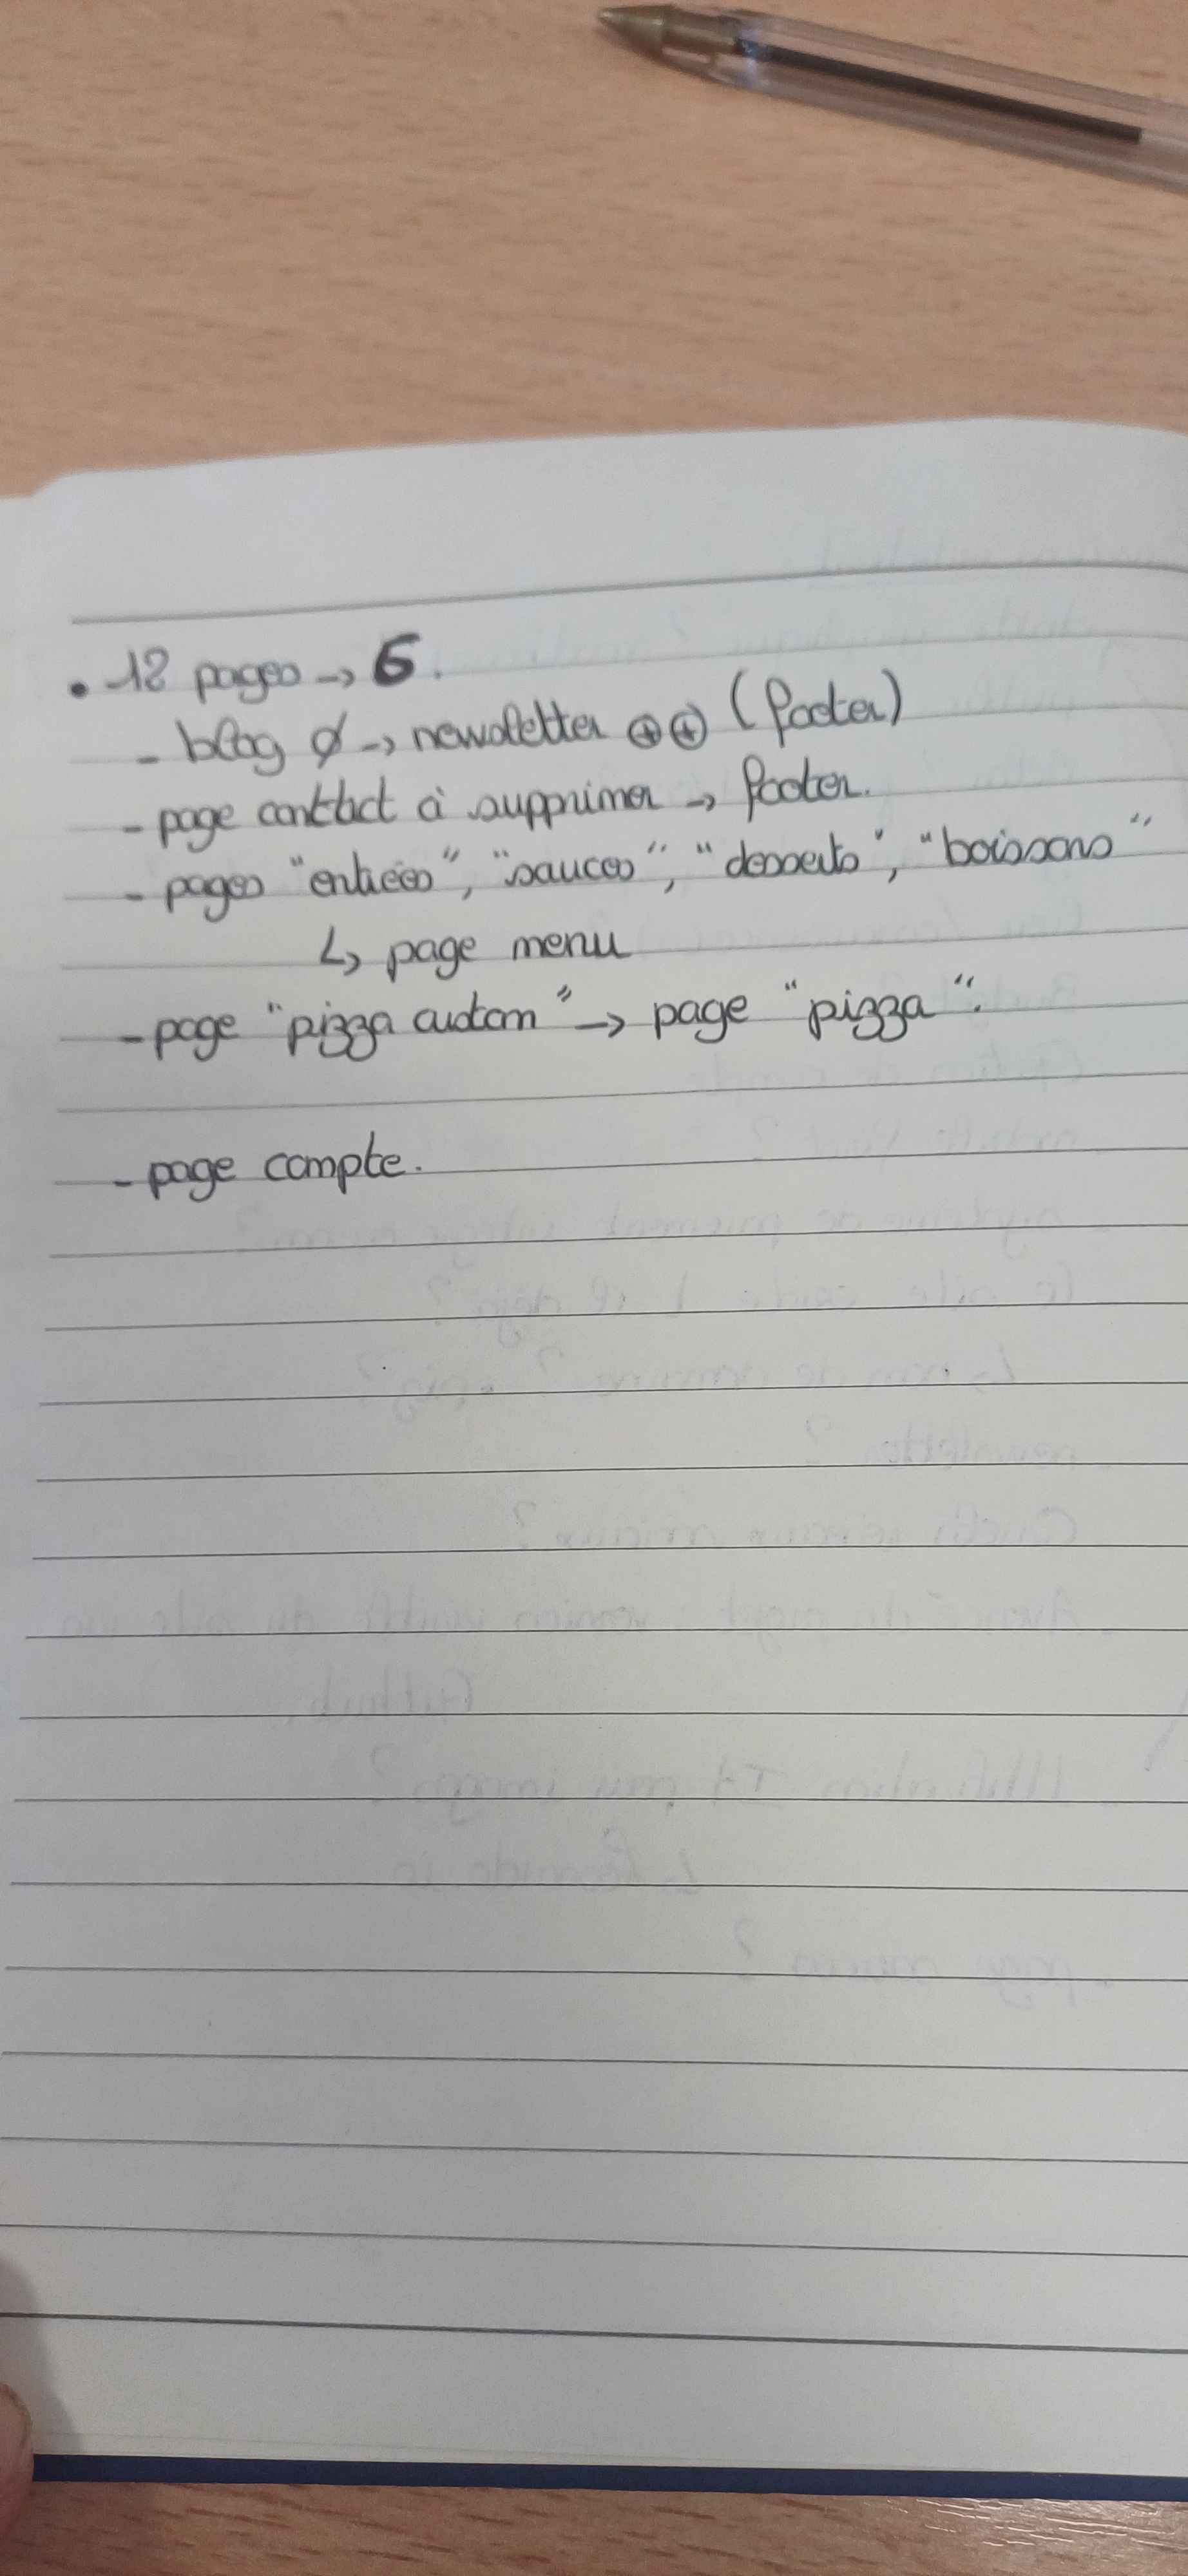 • 12 pages → 6.
- blog ∅ → newsletter ⊕⊕ (footer)
- page contact à supprimer → footer.
- pages "entrées", "sauces", "desserts", "boissons"
↳ page menu
- page "pizza custom" → page "pizza".
- page compte.